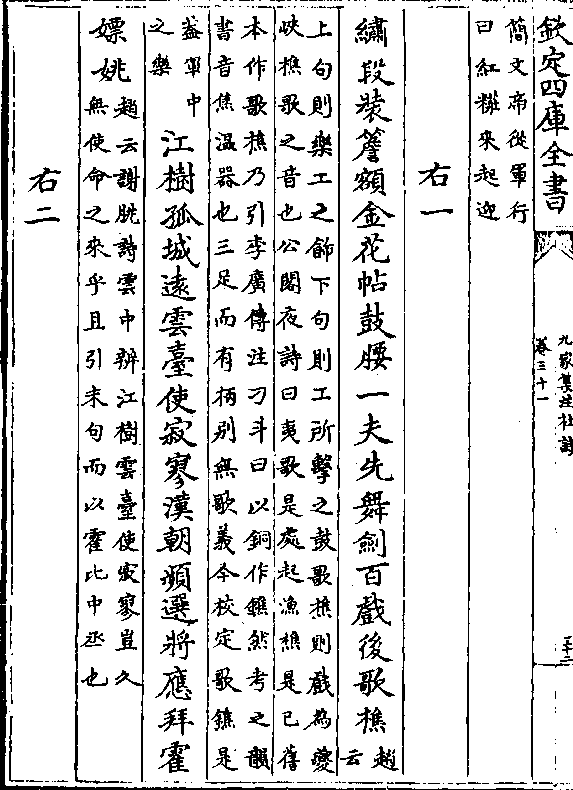 欽定四庫全書
九家集注杜詩
卷三十一
簡文帝從軍行
曰紅粧來起迎
右一
繡段裝簷額金花帖鼓腰一夫先舞劍百戲後歌樵趙云
上句則樂工之飾下句則工所擊之鼓歌樵則戲為夔
峽樵歌之音也公閣夜詩曰夷歌是處起漁樵是已舊
本作歌樵乃引李廣傳注刁斗曰以銅作鐎然考之韻
書音焦温器也三足而有柄别無歌義今校定歌鐎是
葢軍中
之樂
江樹孤城遠雲臺使寂寥漢朝頻選將應拜霍
嫖姚趙云謝朓詩雲中辨江樹雲臺使寂寥豈久
無使命之來乎且引末句而以霍比中丞也
右二